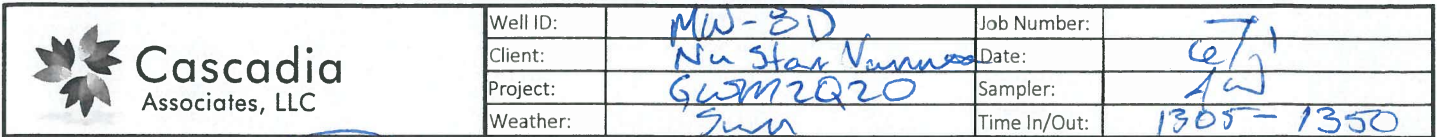 Cascadia
Associates, LLC
Well ID: MW-8D Job Number:
Client: Nu Star Date:
Project: GWM2Q20 Sampler:
Weather: Sun Time In/Out: 1305-1350